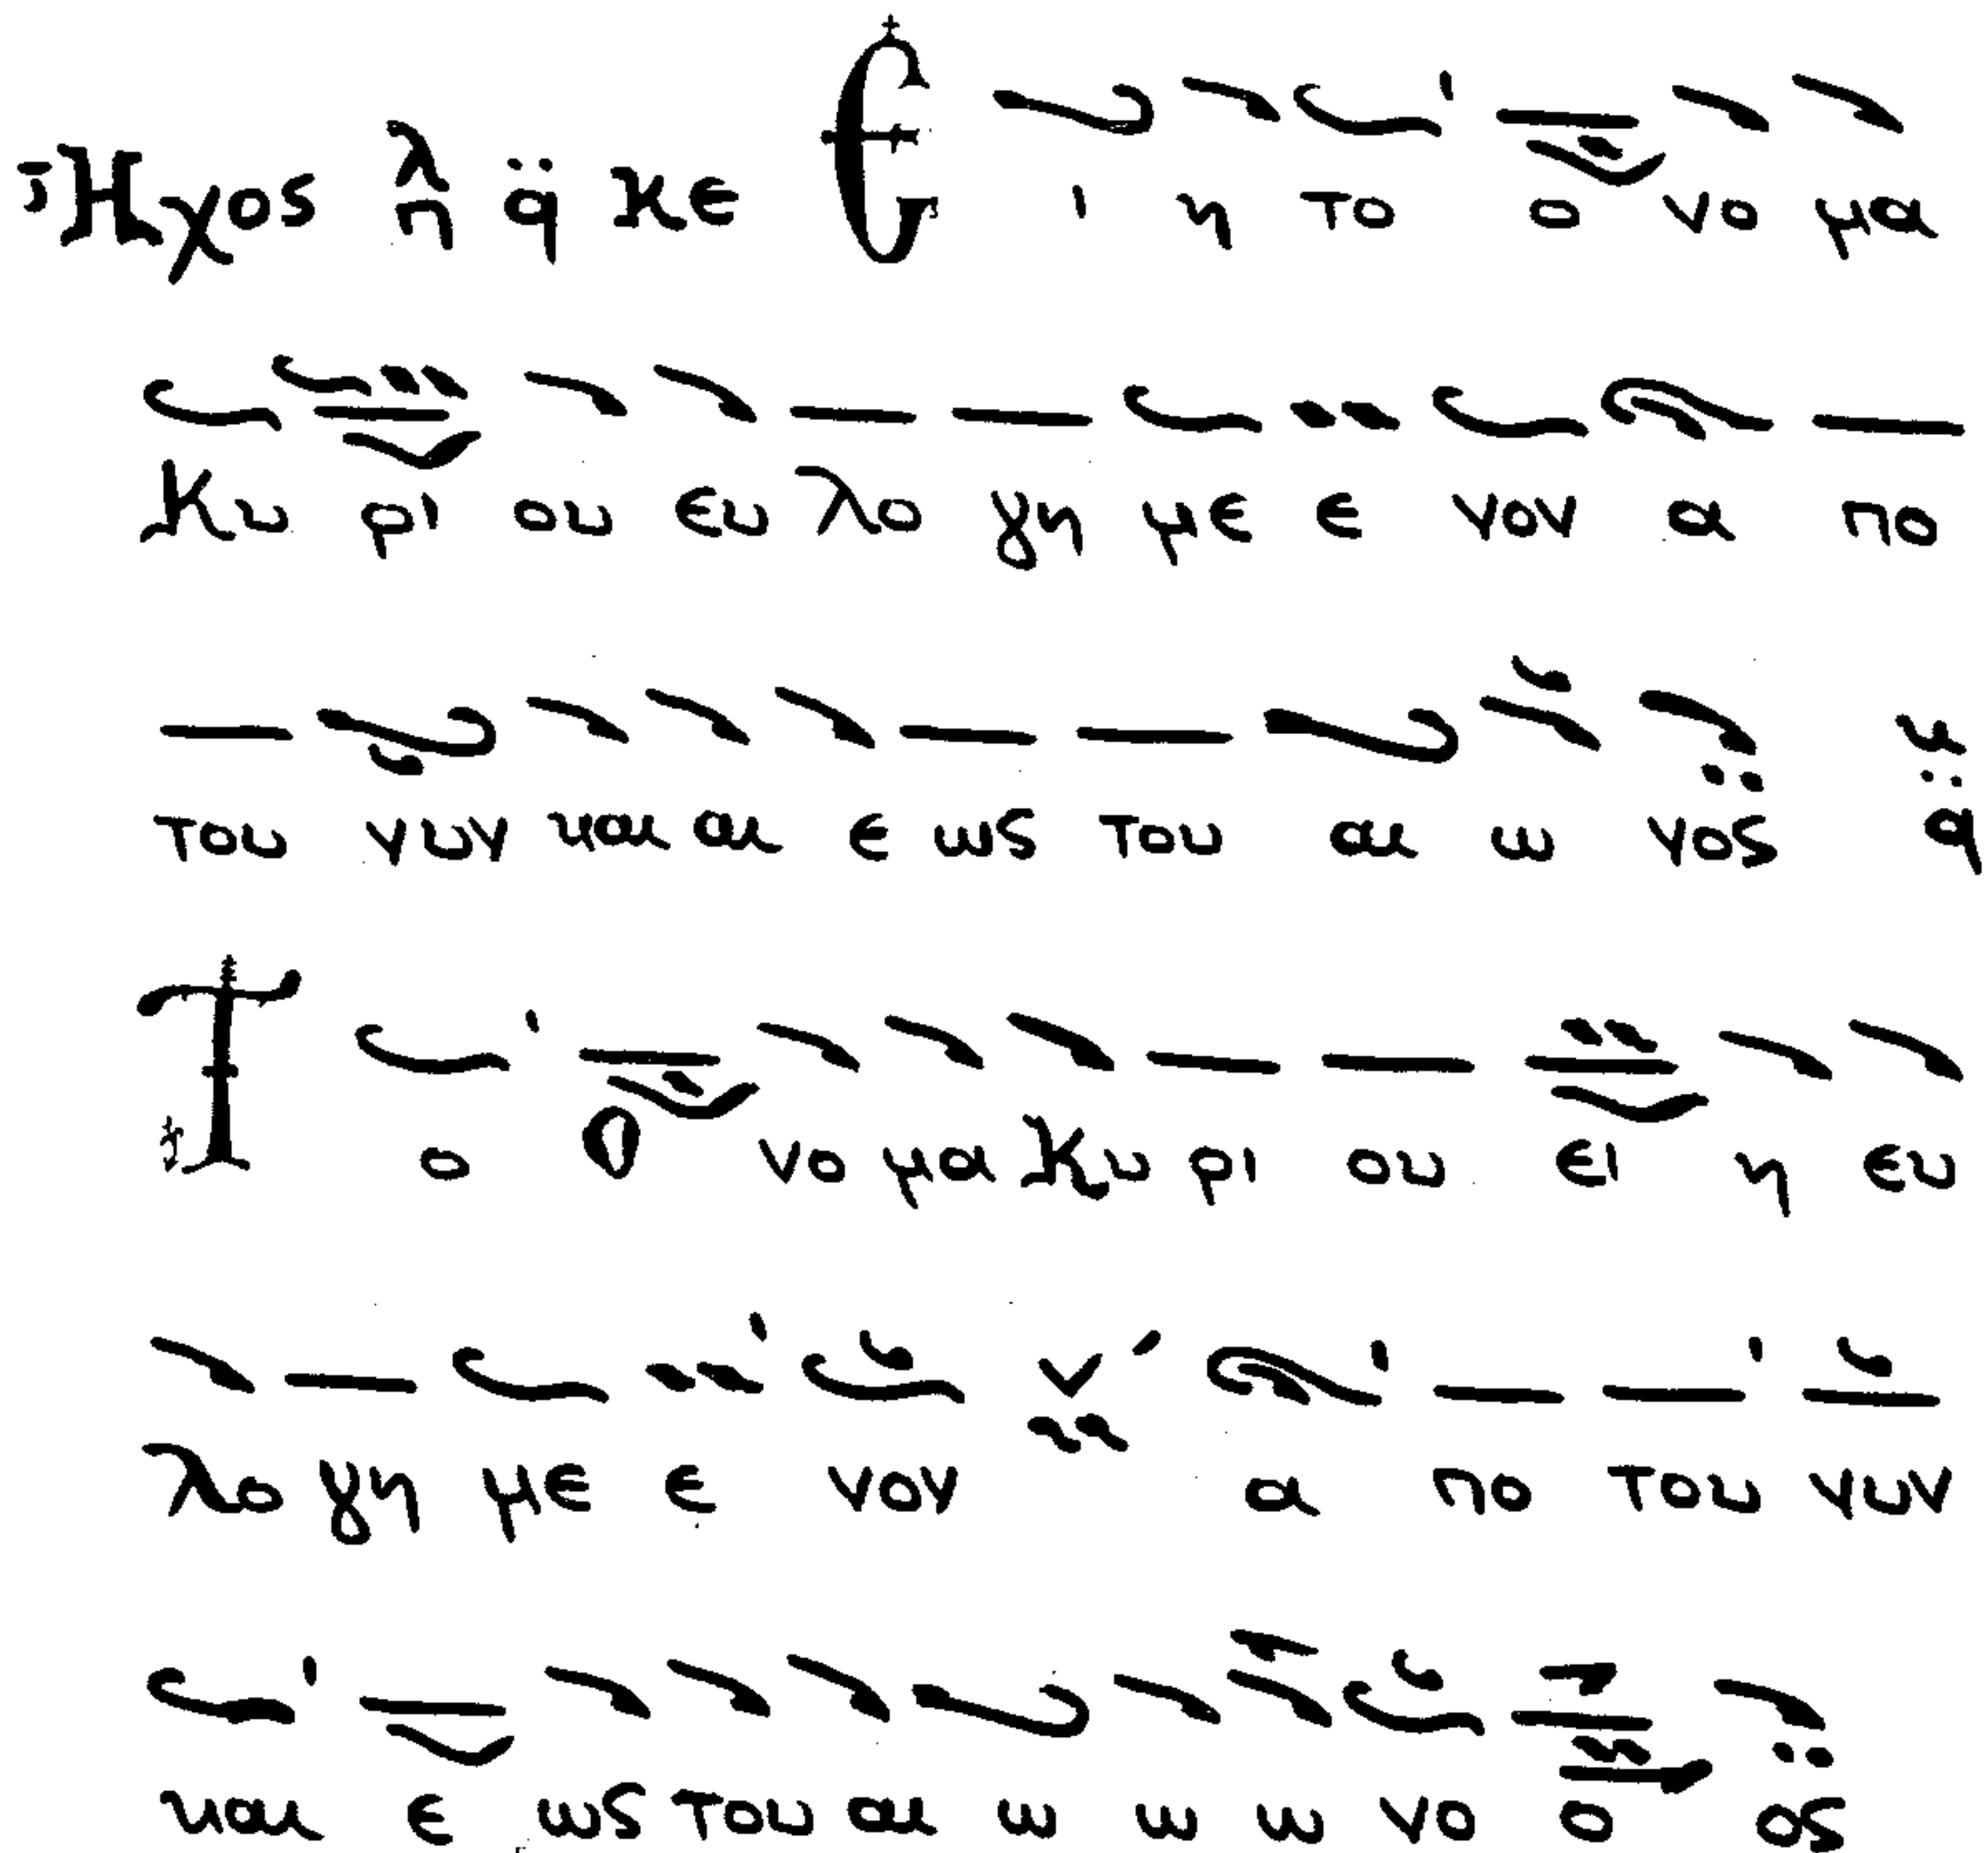 Ἦχος λ π ᾳ̈ κε Ε ι η το ο νο μα
Κυ ρι ου ευ λο γη με ε νον α πο
του νυν και αι ε ως του αι ω νος ᾳ̈
Τ ο ο νο μα Κυ ρι ου ει η ευ
λο γη με ε νον α πο του νυν
και ε ως του αι ω ω ω νο ο ος